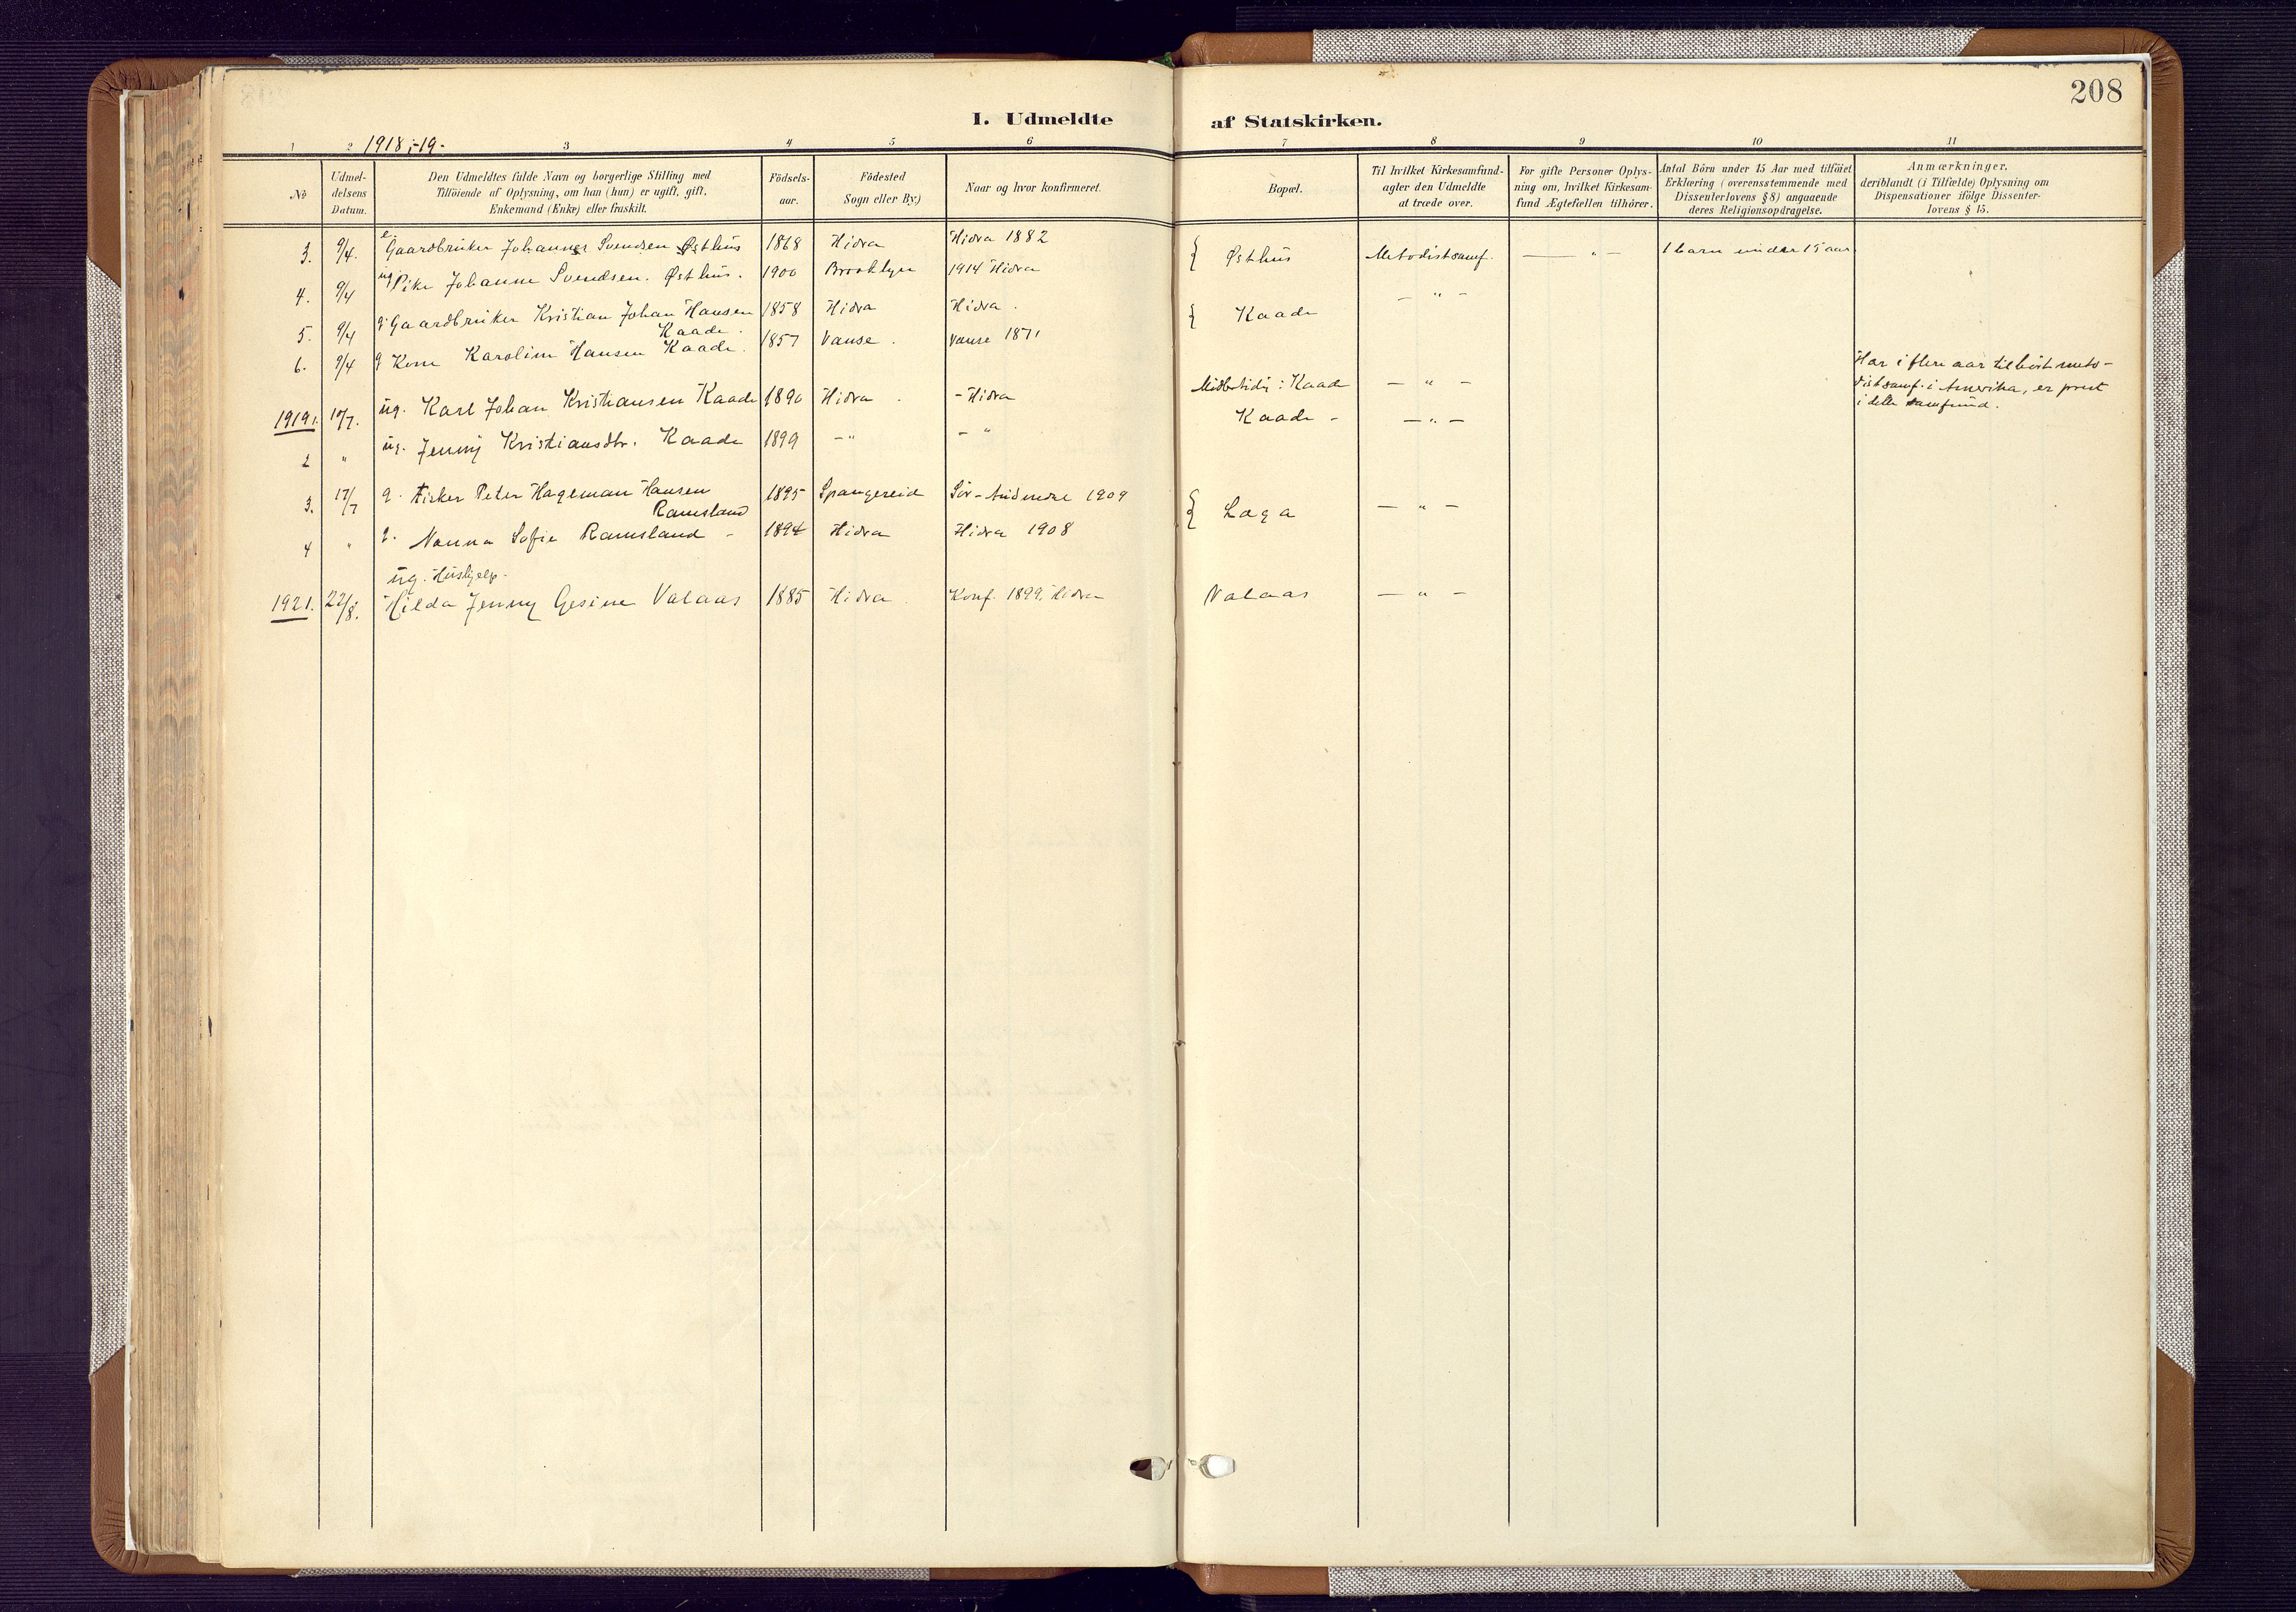 208
I. Udmeldte af Statskirken.
1 2 1918-19. 3 4 5 6 7 8 9 10 11
No
Udmel-
delsens
Datum.
Den Udmeldtes fulde Navn og borgerlige Stilling med
Tilföiende af Oplysning, om han (hun) er ugift, gift,
Enkemand (Enke) eller fraskilt.
Födsels-
aar.
Födested
Sogn eller By)
Naar og hvor konfirmeret.
Bopæl.
Til hvilket Kirkesamfund
agter den Udmeldte
at træde over.
For gifte Personer Oplys-
ning om, hvilket Kirkesam-
fund Ægtefællen tilhörer.
Antal Börn under 15 Aar med tilföiet
Erklæring (overensstemmende med
Dissenterlovens § 8) angaaende
deres Religionsopdragelse.
Anmærkninger,
deriblandt (i Tilfælde) Oplysning om
Dispensationer ifölge Dissenter-
lovens § 15.
3. 9/4. e Gaardbruker Johannes Svendsen Østhus 1868 Hidra Hidra 1882 Østhus Metodistsamf. — " — 1 barn under 15 aar
4. 9/4 ug Pike Johanne Svendsen. Østhus. 1900 Brooklyn 1914 Hidra — " —
5. 9/4 g Gaardbruker Kristian Johan Hansen 1858 Hidra Hidra. Kaade
Kaade.
6. 9/4 g Kone Karoline Hansen Kaade. 1857 Vanse. Vanse 1871
1919 1. 17/7. ug. Karl Johan Kristiansen Kaade 1890 Hidra. - Hidra Midlertidig: Kaade — " — Har i flere aar tilhørt meto-
distsamf. i Amerika, er prest
i dette samfund.
2 " ug. Jenny Kristiansdtr. Kaade 1899 - " - " Kaade - — " —
3. 17/7 g. Fisker Peter Hageman Hansen 1895 Spangereid Sør-Audnedal 1909 Loga — " —
Ramsland
4 " g. Nanna Sofie Ramsland - 1894 Hidra Hidra 1908
ug. Hushjelp.
1921. 22/8. Hilda Jenny Gesine Valaas 1885 Hidra Konf. 1899, Hidra Valaas — " —